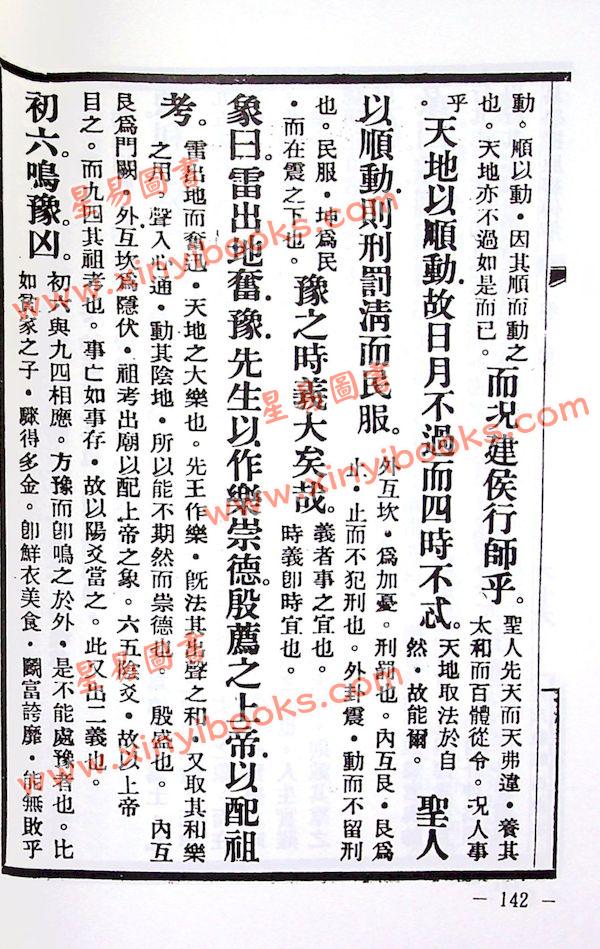 動。順以動・因其順而動之
也。天地亦不過如是而已。
而况建侯行師乎。
聖人先天而天弗違・養其
太和而百體從令。况人事
乎。
天地以順動故日月不過而四時不忒。
天地取法於自
然・故能爾。
聖人
以順動則刑罰清而民服。
外互坎・爲加憂。刑罰也。內互艮・艮爲
止・止而不犯刑也。外卦震・動而不留刑
也。民服・坤爲民
・而在震之下也。
豫之時義大矣哉。
義者事之宜也。
時義卽時宜也。
象曰。雷出地奮豫先生以作樂崇德。殷薦之上帝以配祖
考。
雷出地而奮迅・天地之大樂也。先王作樂・旣法其出聲之和・又取其和樂
之用。聲入心通・動其陰地・所以能不期然而崇德也。殷盛也。內互
艮爲門闕・外互坎爲隱伏・祖考出廟以配上帝之象。六五陰爻・故以上帝
目之。而九四其祖考也。事亡如事存・故以陽爻當之。此又出一義也。
初六。鳴豫。凶。
初六與九四相應。方豫而卽鳴之於外・是不能處豫者也。比
如家之子・驟得多金。卽鮮衣美食・鬭富誇靡・能無敗乎
— 142 —
星易圖書
www.xinyibooks.com
星易圖書
www.xinyibooks.com
星易圖書
www.xinyibooks.com